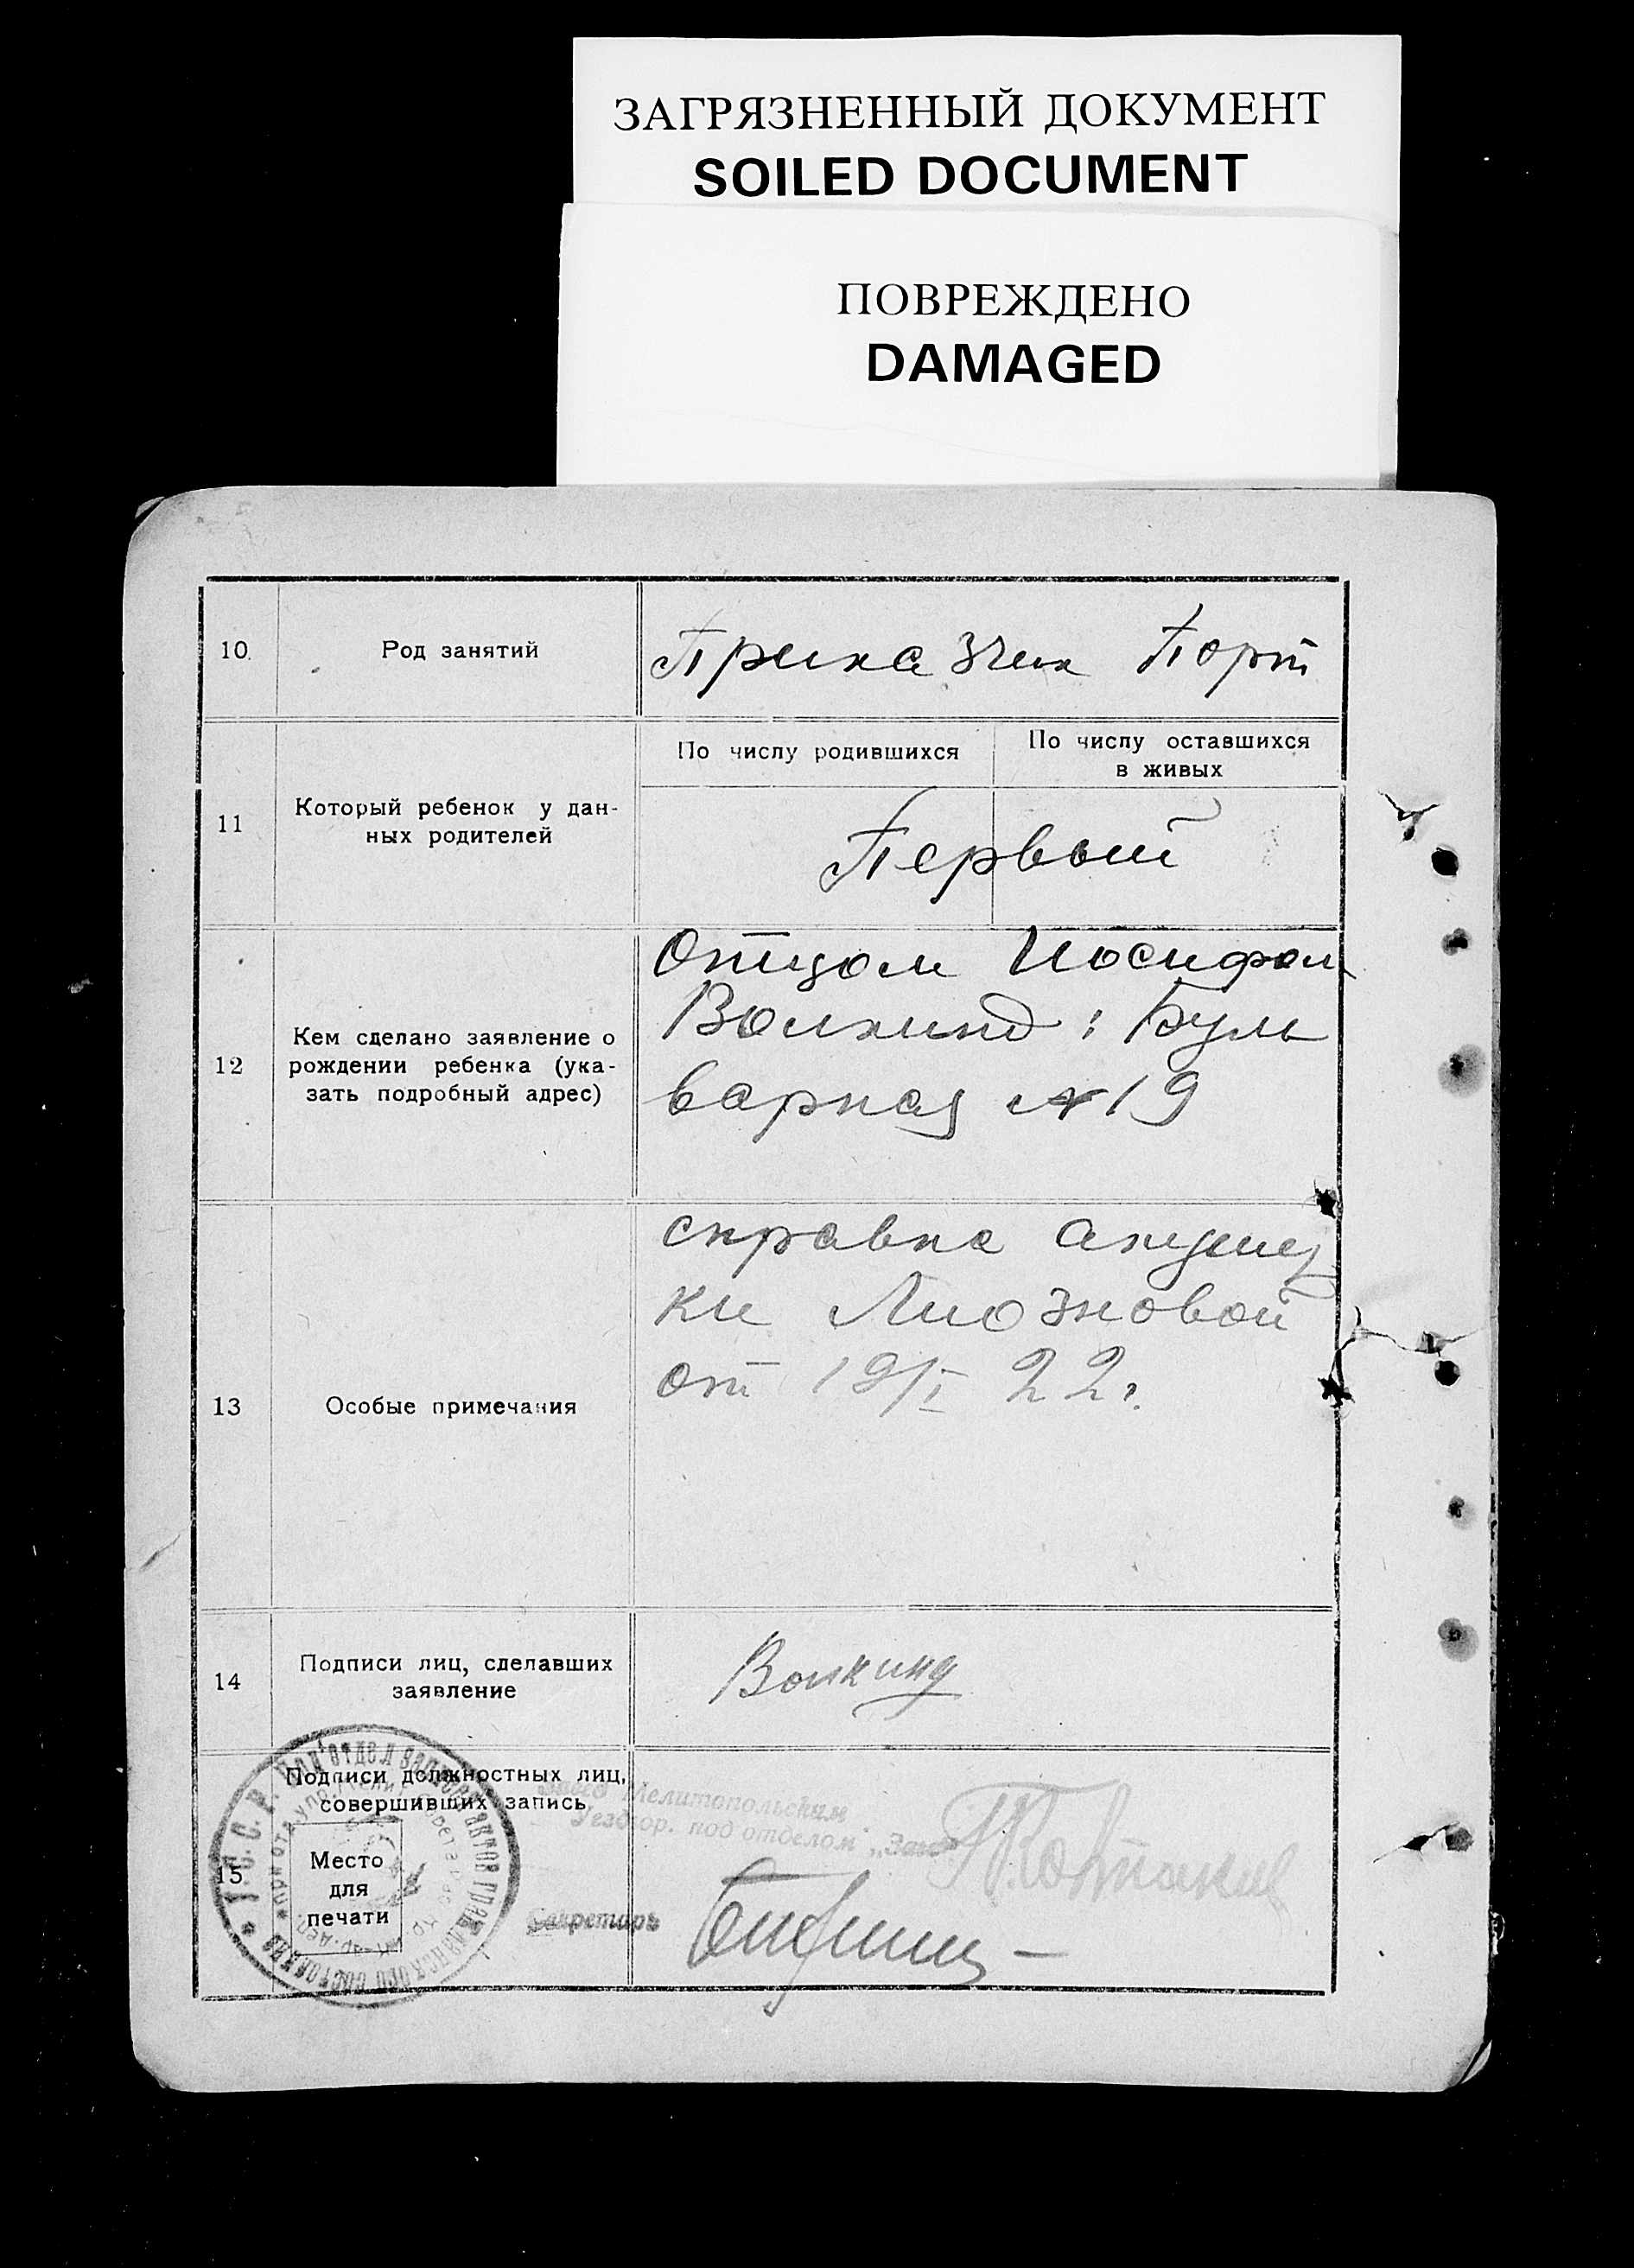 ЗАГРЯЗНЕННЫЙ ДОКУМЕНТ
SOILED DOCUMENT
ПОВРЕЖДЕНО
DAMAGED
10. Род занятий
Приказчик Порт
11 Который ребенок у дан-
ных родителей
По числу родившихся
По числу оставшихся
в живых
Первый
12 Кем сделано заявление о
рождении ребенка (ука-
зать подробный адрес)
Отцом Иосифом
Волкинд: Буль
варная №19
13 Особые примечания
справка акушер
ки Лиозновой
от 19/I 22г.
14 Подписи лиц, сделавших
заявление
Волкинд
15. Подписи должностных лиц,
совершивших запись
Место
для
печати
Завед Мелитопольским
Уезд гор. под отделом „Загс"
Секретарь